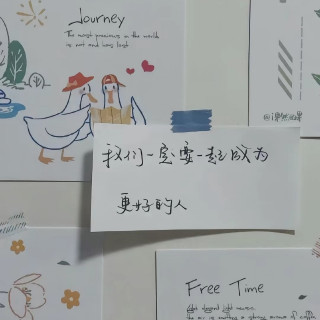 Journey
The most precious in the world
is not and has lost
我们一定要一起成为
更好的人
Free Time